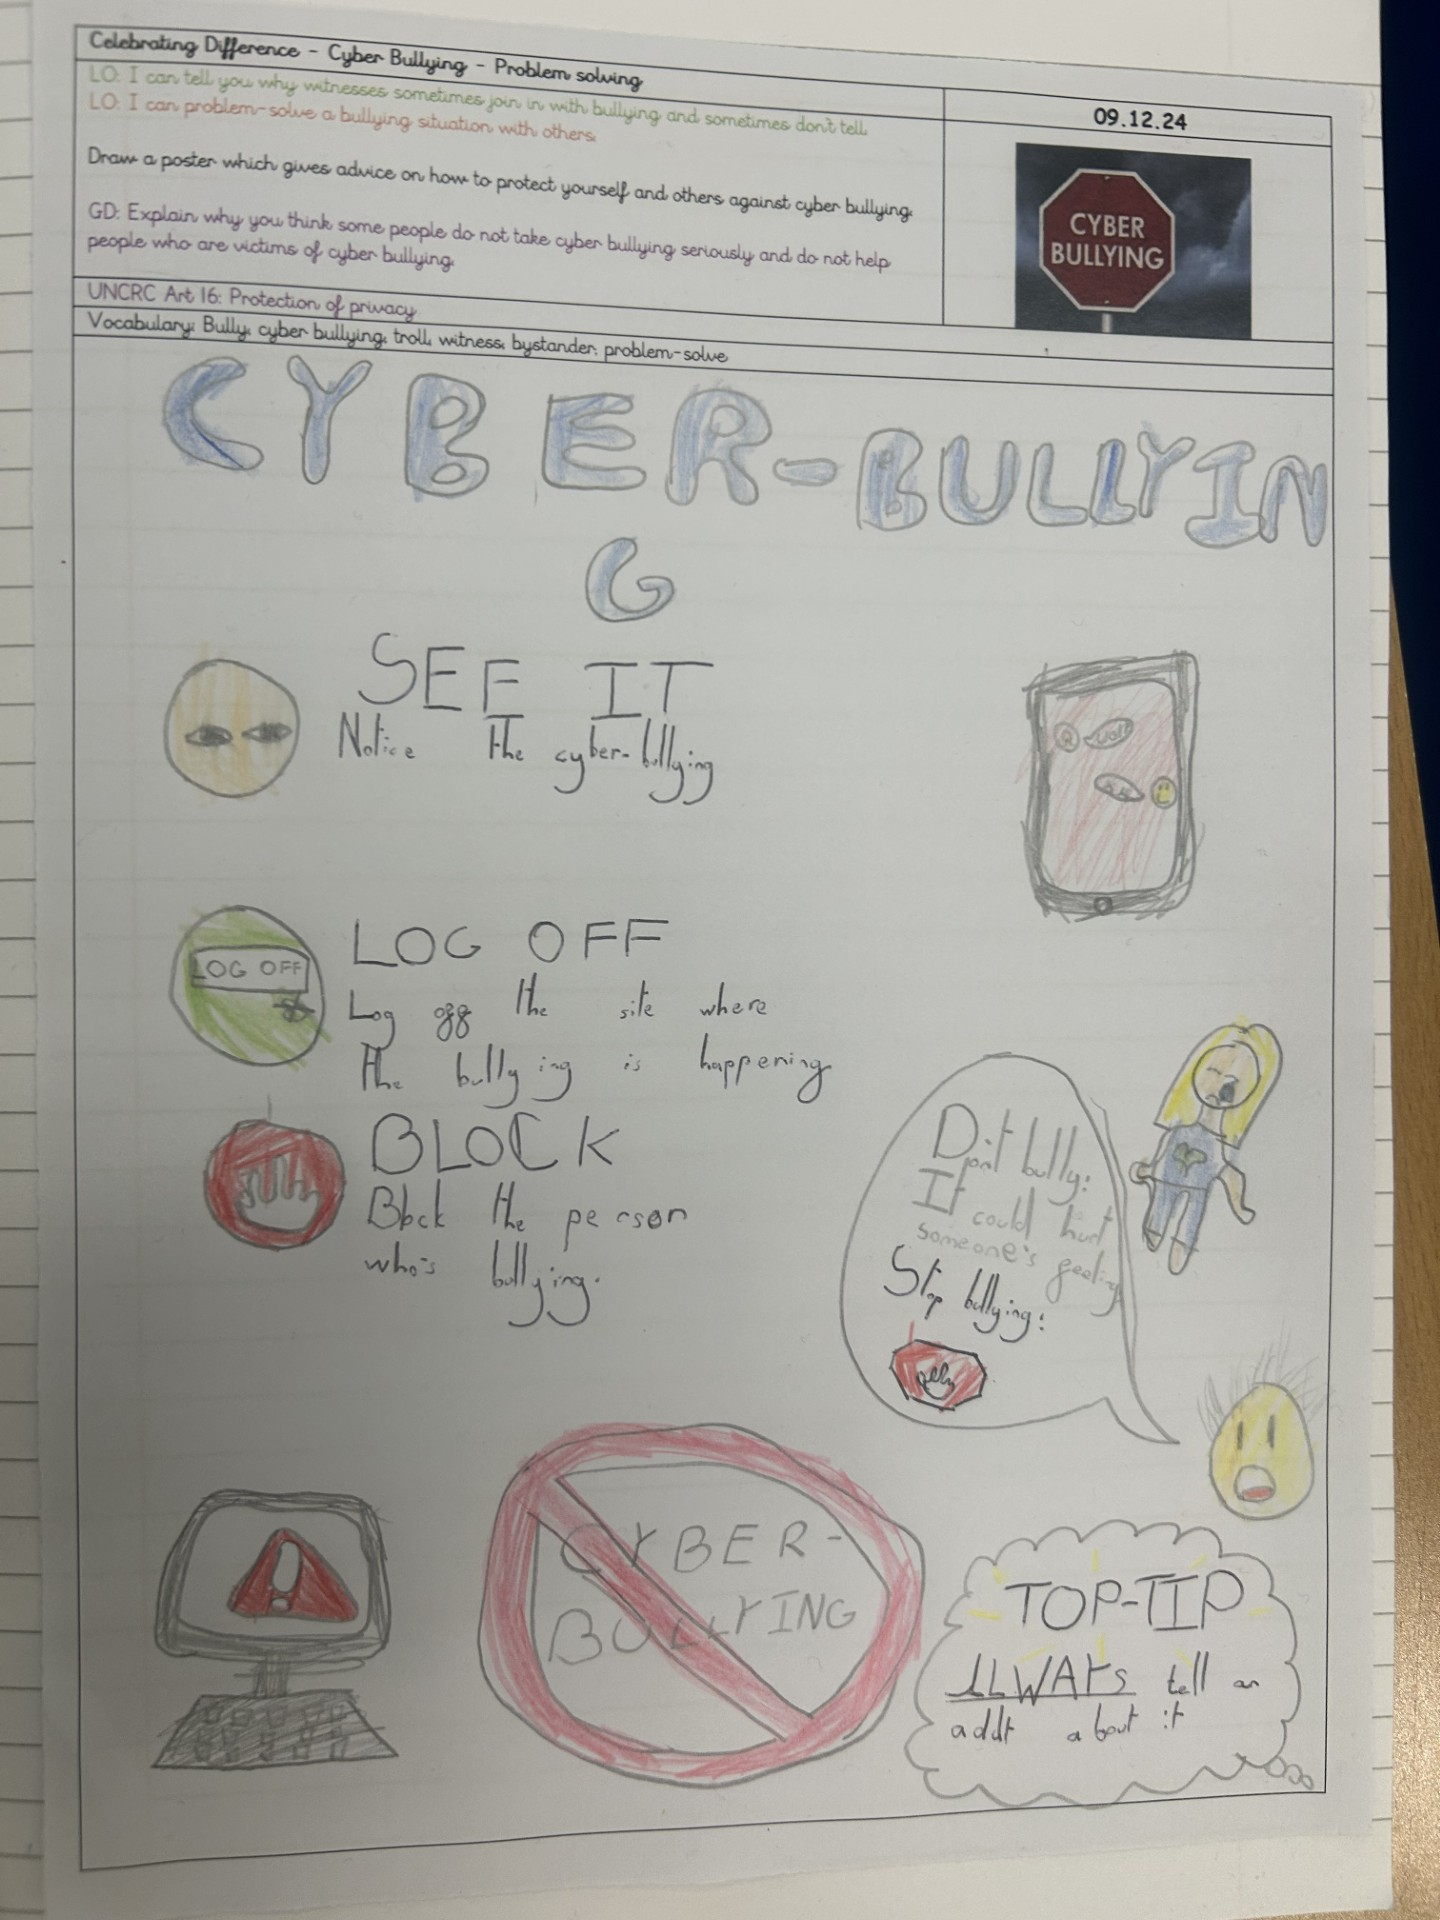 Celebrating Difference - Cyber Bullying - Problem solving
LO: I can tell you why witnesses sometimes join in with bullying and sometimes don't tell.
LO: I can problem-solve a bullying situation with others.
Draw a poster which gives advice on how to protect yourself and others against cyber bullying.
GD: Explain why you think some people do not take cyber bullying seriously and do not help
people who are victims of cyber bullying.
09.12.24
CYBER
BULLYING
UNCRC Art 16: Protection of privacy
Vocabulary: Bully, cyber bullying, troll, witness, bystander, problem-solve
CYBER-BULLYIN
G
SEE IT
Notice the cyber-bullying
LOG OFF
LOG OFF
Log off the site where
the bullying is happening
BLOCK
Block the person
who's bullying.
Dont bully!
It could hurt
someone's feelings
Stop bullying!
CYBER-
BULLYING
TOP-TIP
ALWAYS tell an
adult about it